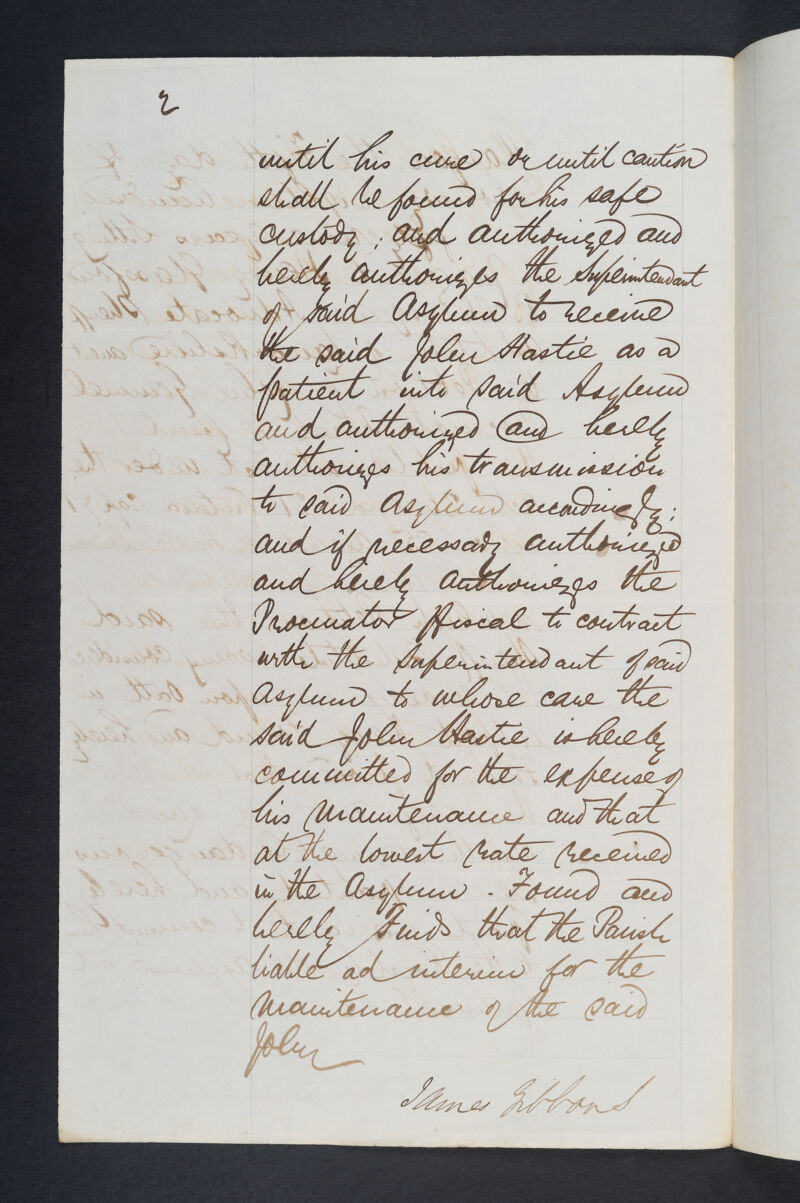 2
until his cure or until caution
shall be found for his safe
custody; and authorized and
hereby authorizes the Superintendant
of said Asylum to receive
the said John Hastie as a
patient into said Asylum
and authorized and hereby
authorizes his transmission
to said Asylum accordingly;
and if necessary authorized
and hereby authorizes the
Procurator Fiscal to contract
with the Superintendant of said
Asylum to whose care the
said John Hastie is hereby
committed for the expense of
his maintenance and that
at the lowest rate received
in the Asylum - Found and
hereby Finds that the Parish
liable ad interim for the
maintenance of the said
John
James Gibbons